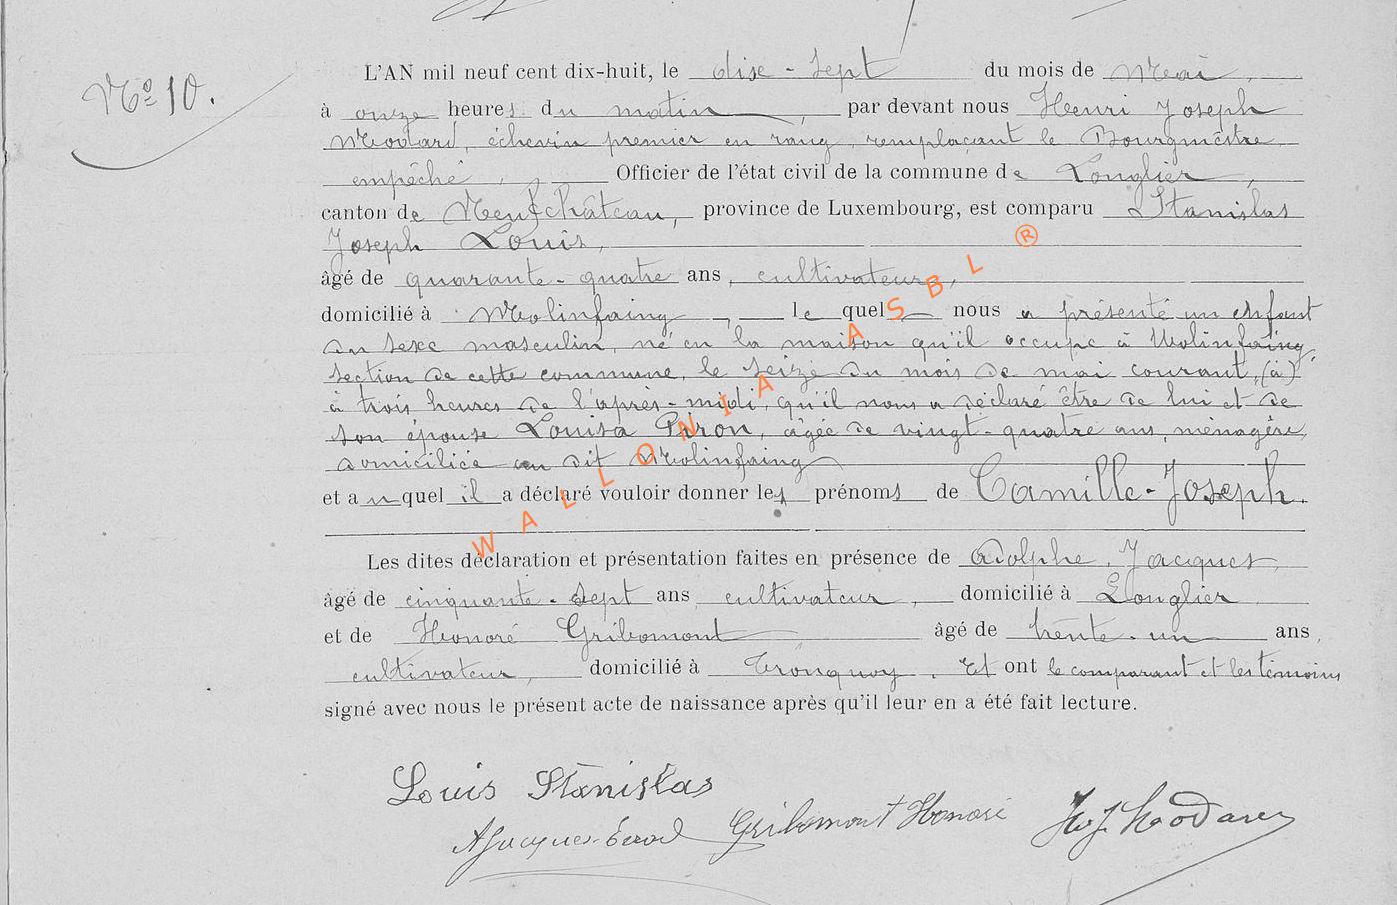 Nº 10.
L'AN mil neuf cent dix-huit, le dise-sept du mois de Mai,
à onze heures du matin, par devant nous Henri Joseph
Modard, échevin premier en rang, remplaçant le Bourgmestre
empêché, Officier de l'état civil de la commune de Longlier,
canton de Neufchâteau, province de Luxembourg, est comparu Stanislas
Joseph Louis,
âgé de quarante-quatre ans, cultivateur,
domicilié à Molinfaing, le quel nous a présenté un enfant
du sexe masculin, né en la maison qu'il occupe à Molinfaing,
section de cette commune, le seize du mois de mai courant, (à)
à trois heures de l'après-midi, qu'il nous a déclaré être de lui et de
son épouse Louisa Piron, âgée de vingt-quatre ans, ménagère,
domiciliée au dit Molinfaing
et auquel il a déclaré vouloir donner les prénoms de Camille-Joseph.
Les dites déclaration et présentation faites en présence de Adolphe Jacques
âgé de cinquante-sept ans, cultivateur, domicilié à Longlier
et de Honoré Gribomont âgé de trente-un ans,
cultivateur, domicilié à Tronquoy. Et ont le comparant et les témoins
signé avec nous le présent acte de naissance après qu'il leur en a été fait lecture.
Louis Stanislas
AJacques Gribomont Honoré HJ Modard
WALLONIA ASBL ®